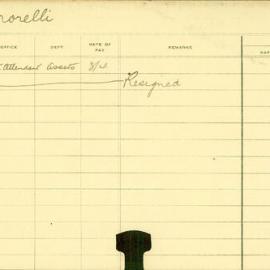 orelli
OFFICE DEPT. RATE OF PAY REMARKS
Attendant Assets 3/d
Resigned